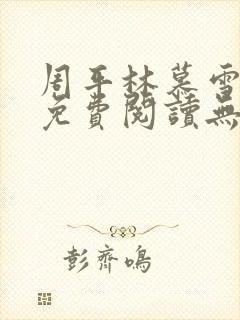 周平林慕雪
免費閱讀無
彭齊鳴